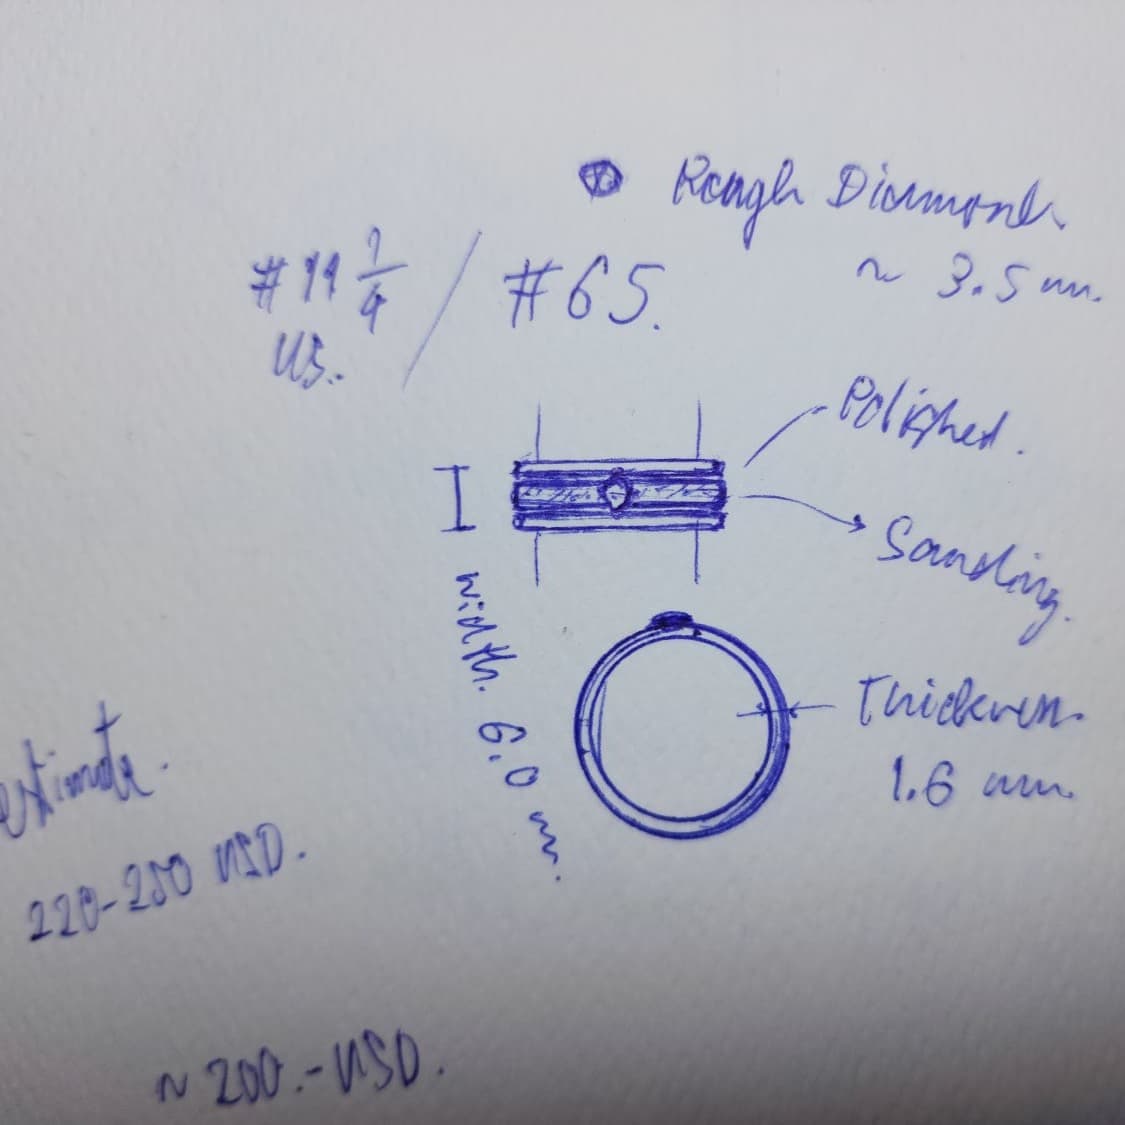 Rough Diamond.
~ 3.5 mm.
#11 1/4 / #65.
US.
Polished.
Sanding.
width. 6.0 m.
Thickness.
1.6 mm.
estimate.
220-250 USD.
~ 200.- USD.